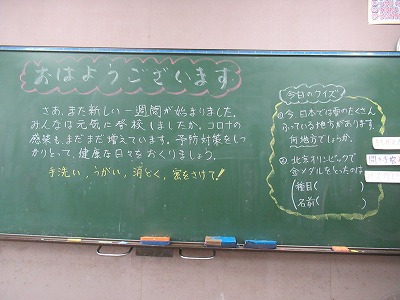 おはようございます
さあ、また新しい一週間が始まりました。
みんなは元気に登校しましたか。コロナの
感染も、まだまだ増えています。予防対策をしっ
かりとって、健康な日々をおくりましょう。
手洗い、うがい、消どく、密をさけて!
今日のクイズ
①今、日本では雪のたくさん
ふっている地方があります。
何地方でしょうか。
②北京オリンピックで
金メダルをとったのは
種目( )
名前( )